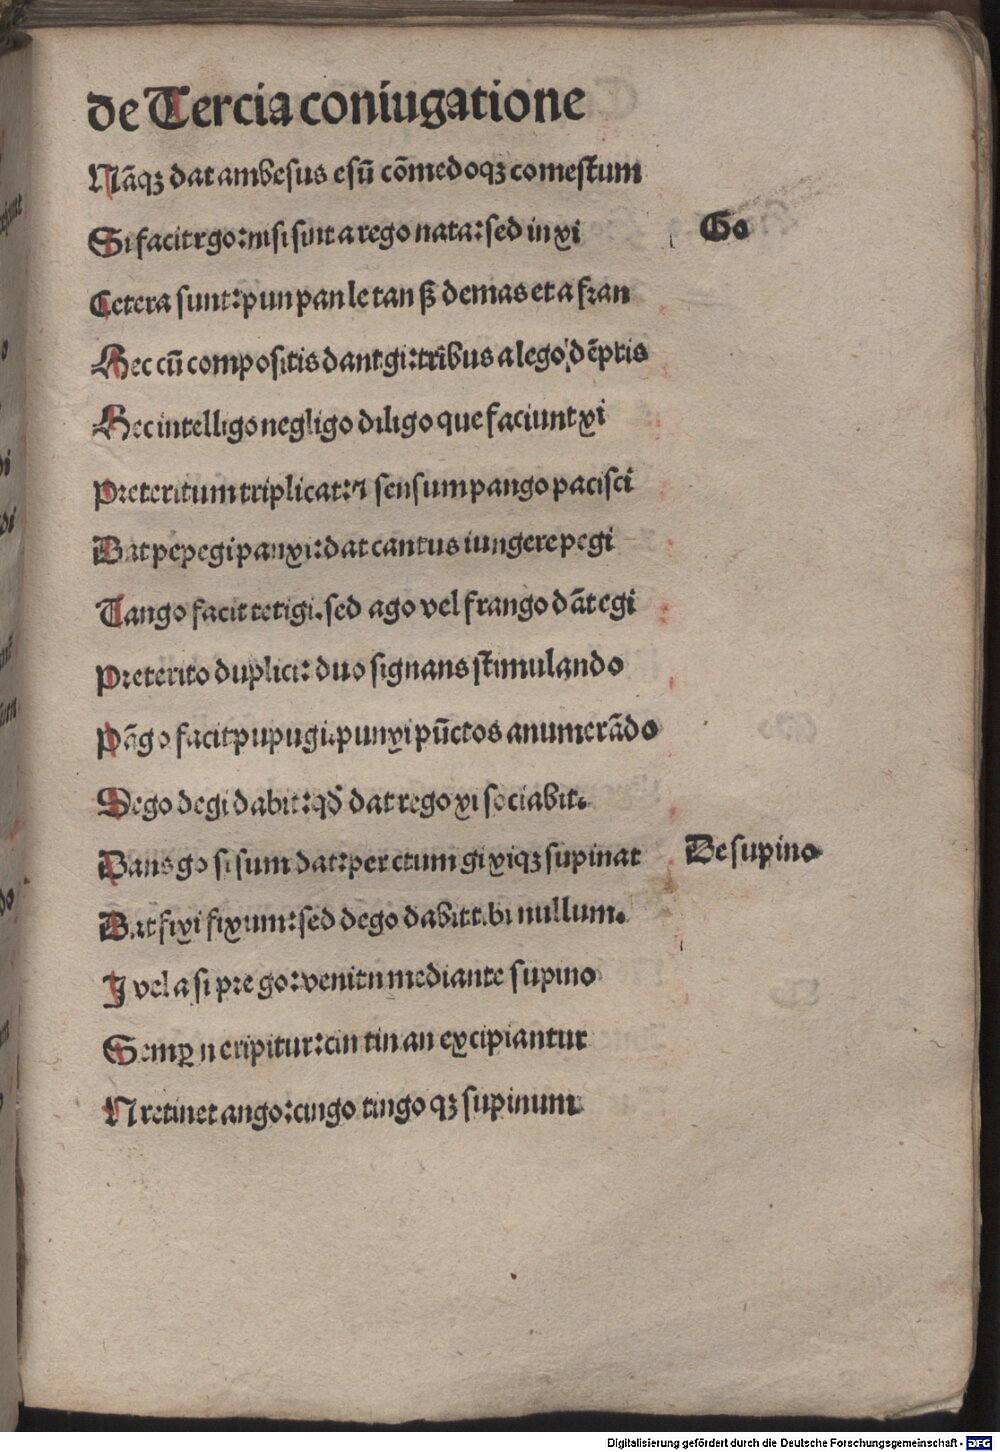 de Tercia coniugatione
Nāqꝫ dat ambesus esū cōmedoqꝫ comestum
Si facit rgo: nisi sint a rego nata: sed in xi
Go
Cetera sunt: pun pan le tan ß demas et a fran
Hec cū compositis dant gi: tribus a lego dēptis
Hec intelligo negligo diligo que faciunt xi
Preteritum triplicat: sensum pango pacisci
Dat pepegi panxi: dat cantus iungere pegi
Tango facit tetigi. sed ago vel frango dāt egi
Preterito duplici: duo signans stimulando
Pāgo facit pupugi. punxi pūctos anumerādo
Dego degi dabit: qđ dat rego xi sociabit.
Dans go si sum dat: per ctum gi xiqꝫ supinat
De supino
Dat fixi fixum: sed dego dabit tibi nullum.
I vel a si pre go: venit n mediante supino
Semꝑ n eripitur: cin tin an excipiantur
N retinet ango: cingo tingo qꝫ supinum
Digitalisierung gefördert durch die Deutsche Forschungsgemeinschaft - DFG